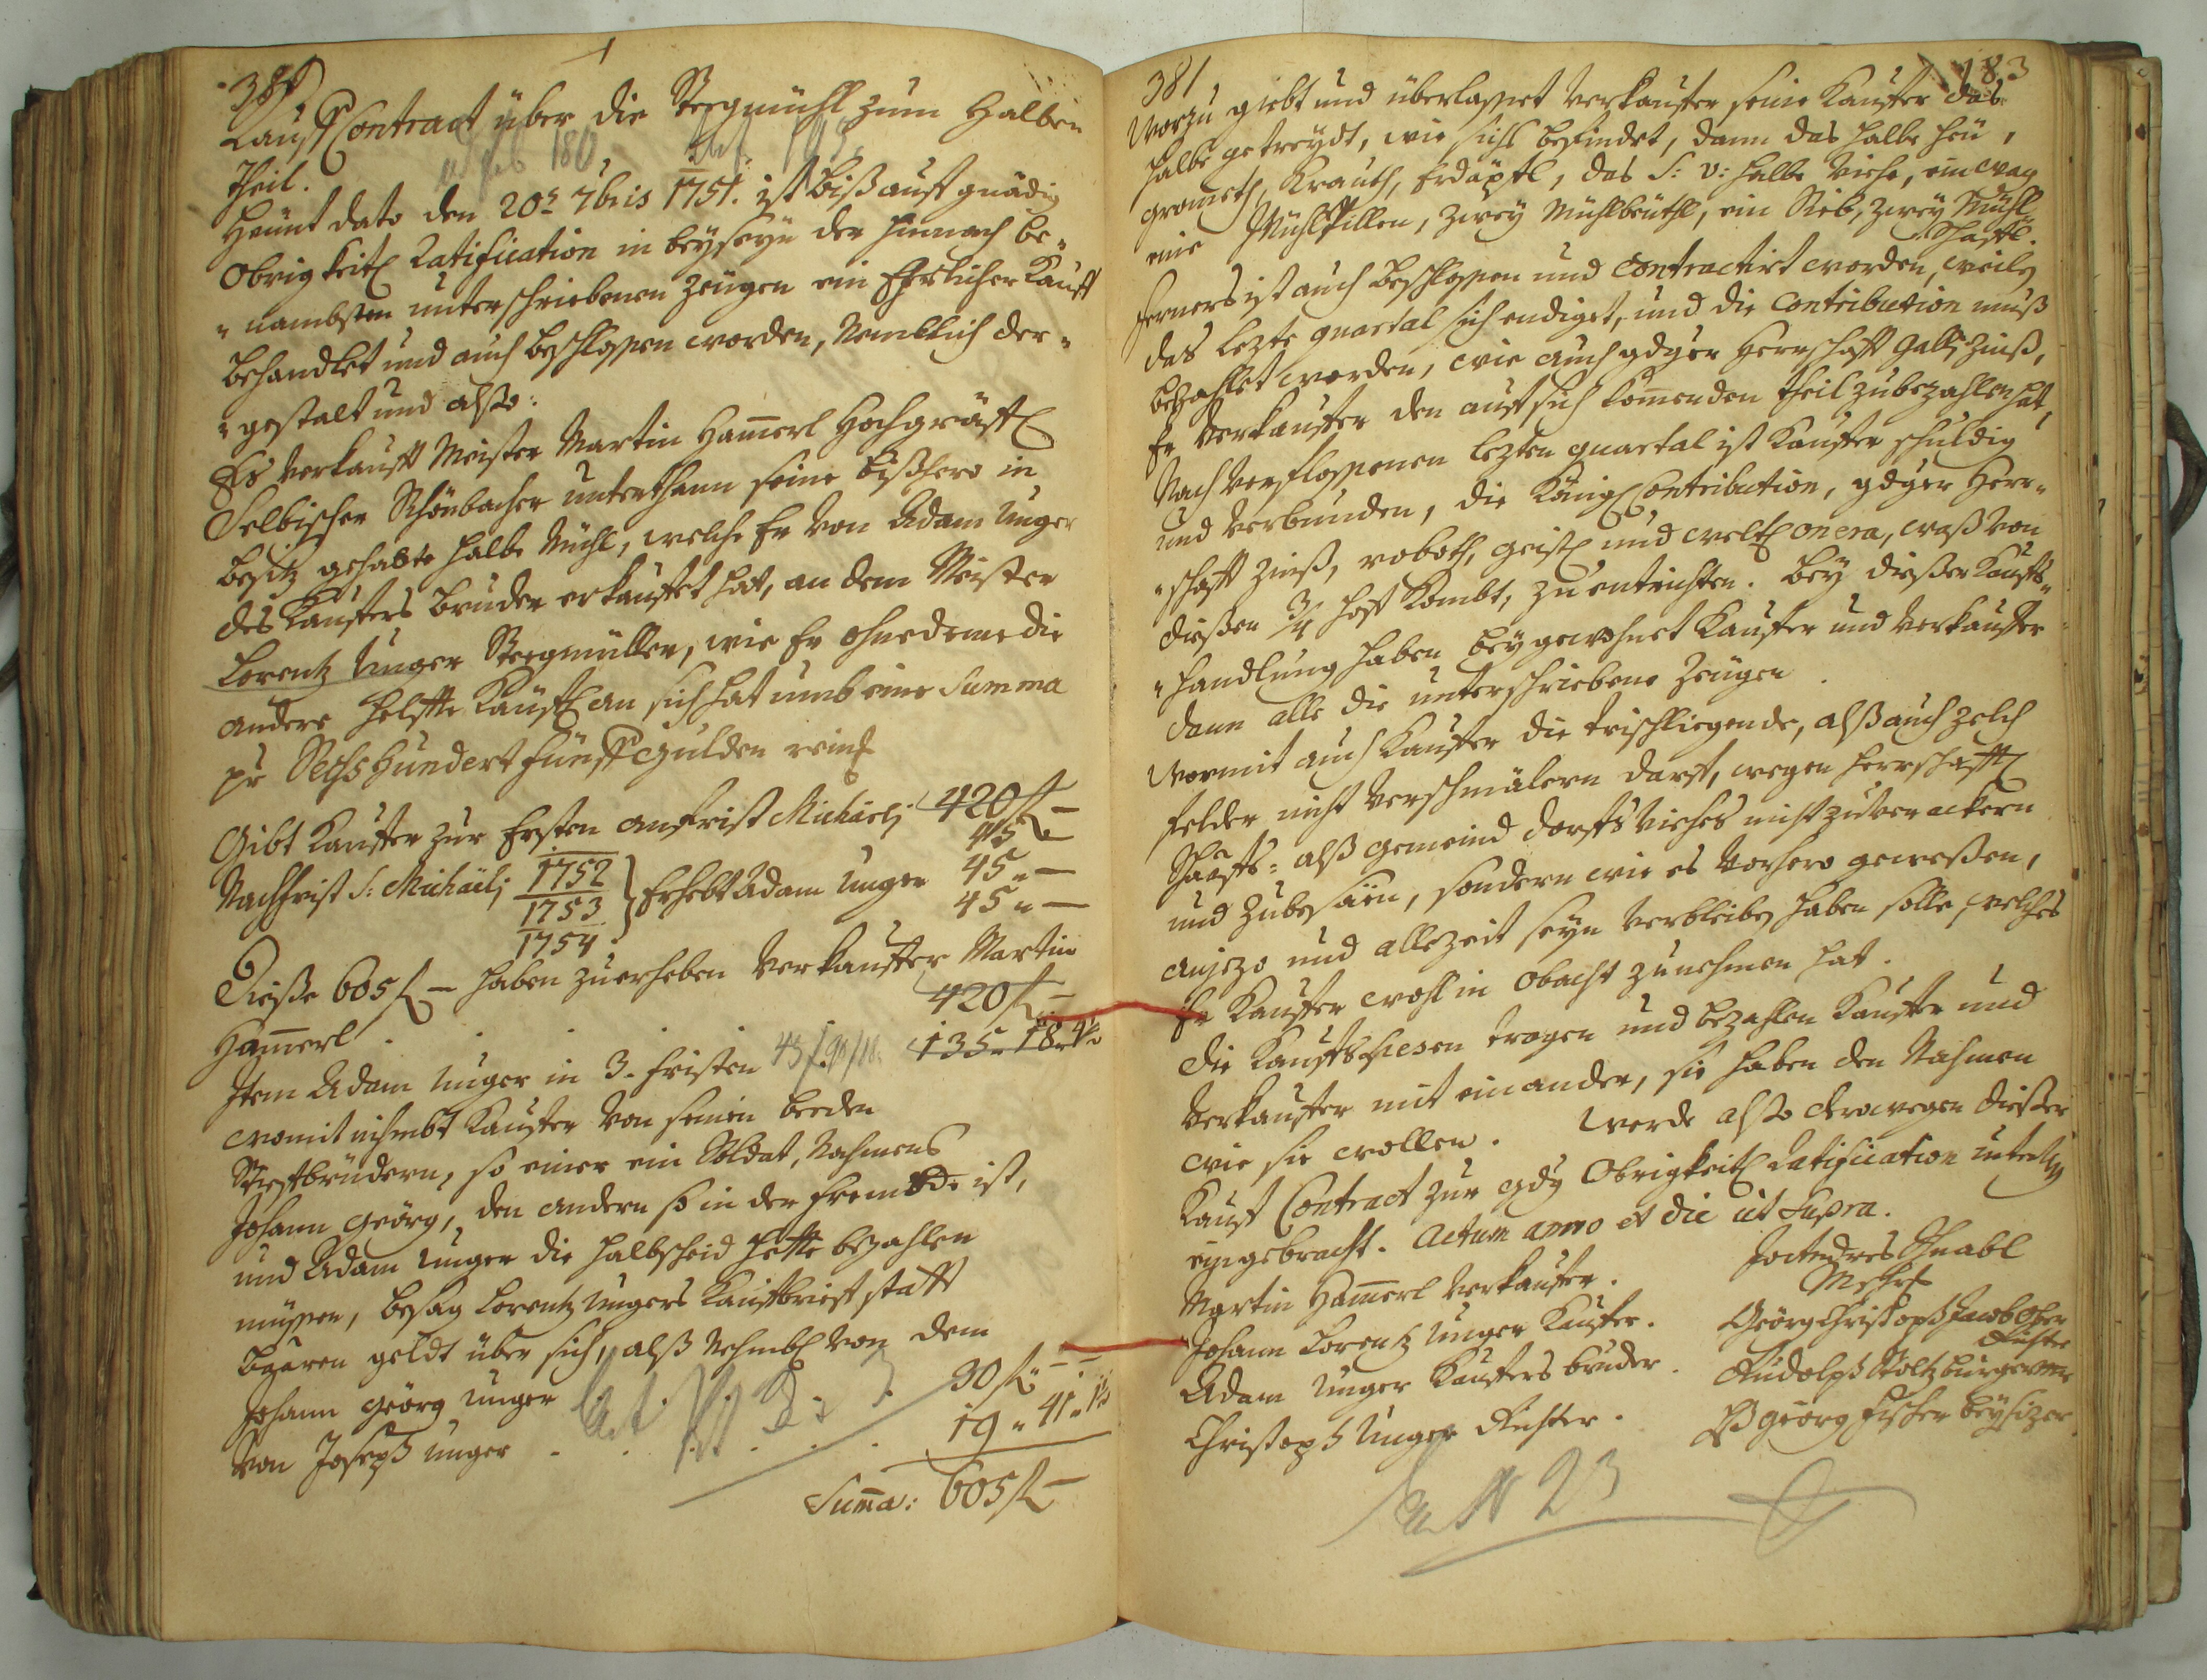 380
Kauff Contract über die Stegmühl zum Halben
Theil.
Heünt dato den 20t 7bris 1751. ist biß auff gnädig
Obrigkeitl Ratification in beyseyn der hernach be„
„nambsten unterschriebenen Zeügen ein Ehrlicher Kauff
behandlet und auch beschlossen worden, Nemblich der„
„gestalt und also:
Es verkaufft Meister Martin Ham̅erl Hochgräffl
Selbischer Schönbacher unterthann seine bißhero in
besitz gehabte halbe Mühl, welche Er von Adam Unger
des Kauffers bruder erkauffet hat, an dem Meister
Lorentz Unger Stegmüller, wie Er ohnedeme die
andere helffte Käuffl an sich hat umb eine Summa
pr Sechs hundert fünff Gulden reinl
Gibt Kauffer zur Ersten anfrist Michaeli 420 f —
45 f —
Nachfrist S: Michaeli 1752 } Erhebt Adam Unger 45 „ —
1753 45 „ —
1754.
Dieße 605 f — haben zu erheben Verkauffer Martin
Ham̅erl . . . . 420 f —
Item Adam Unger in 3. fristen 45 f 135 „ 18 „ 4½
womit nihmbt Kauffer von seinen beeden
Stiefbrüdern, so einer ein Soldat, Nahmens
Johann Georg, den andern so in der frembde ist,
und Adam Unger die halbscheid hette bezahlen
müssen, besag Lorentz Ungers Kauffbrieff statt
baaren geldt über sich, alß Nehmbl von dem
Johann Georg Unger 30 f „ —
von Joseph Unger . . . . . 19 „ 41 „ 1½
Sum̅a: 605 f —
381
183
Worzu giebt und überlasset Verkauffer seine Kauffer das
halbe getreydt, wie sichs befindet, dann das halbe heü,
grometh, Krauth, Erdäpfl, das S: v: halbe Viehe, ein wag
eine Mühlpillen, zwey Mühlbeüthl, ein Sieb, zwey Mühl„
schaffl.
Ferners ist auch beschlossen und Contractirt worden, weiln
das lezte quartal sich endiget, und die Contribution muß
bezahlet werden, wie auch gdger Herrschafft Galli Zinß,
Er Verkauffer den auff sich kom̅enden theil zubezahlen hat,
Nach verflossenen lezten quartal ist Kauffer schuldig
und verbunden, die Königl Contribution, gdger Herr„
„schafft Zinß, roboth, geistl und weltl onera, waß von
dießen ¾ hoff kombt, zu entrichten. Bey dießer Kauffs„
„handlung haben beygewohnet Kauffer und Verkauffer
dann alle die unterschriebene Zeügen.
Wormit auch Kauffer die trischliegende, alß auch Zelch
felder nicht verschmälern darff, wegen Herrschafftl
Schaaffs: alß Gemeind dorffs Viehes nicht zuverackern
und zubesäen, sondern wie es vorhero geweßen,
anjezo und allezeit seyn verbleiben haben solle, welches
Er Kauffer wohl in obacht zunehmen hat.
Die Kauffs spesen tragen und bezahlen Kauffer und
Verkauffer mit einander, sie haben den Nahmen
wie sie wollen. Werde also derowegen dießer
Kauff Contract zur gdg Obrigkeitl Ratification unterthg
eingebracht. Actum anno et die ut supra.
Martin Ham̅erl Verkauffer.
Johann Lorentz Unger Kauffer.
Adam Unger Kauffers bruder.
Christoph Unger Richter.
Schnabl
Georg Christoph Jacob
Richter
Rudolph Stoltz burgermr
Georg Fischer beysizer